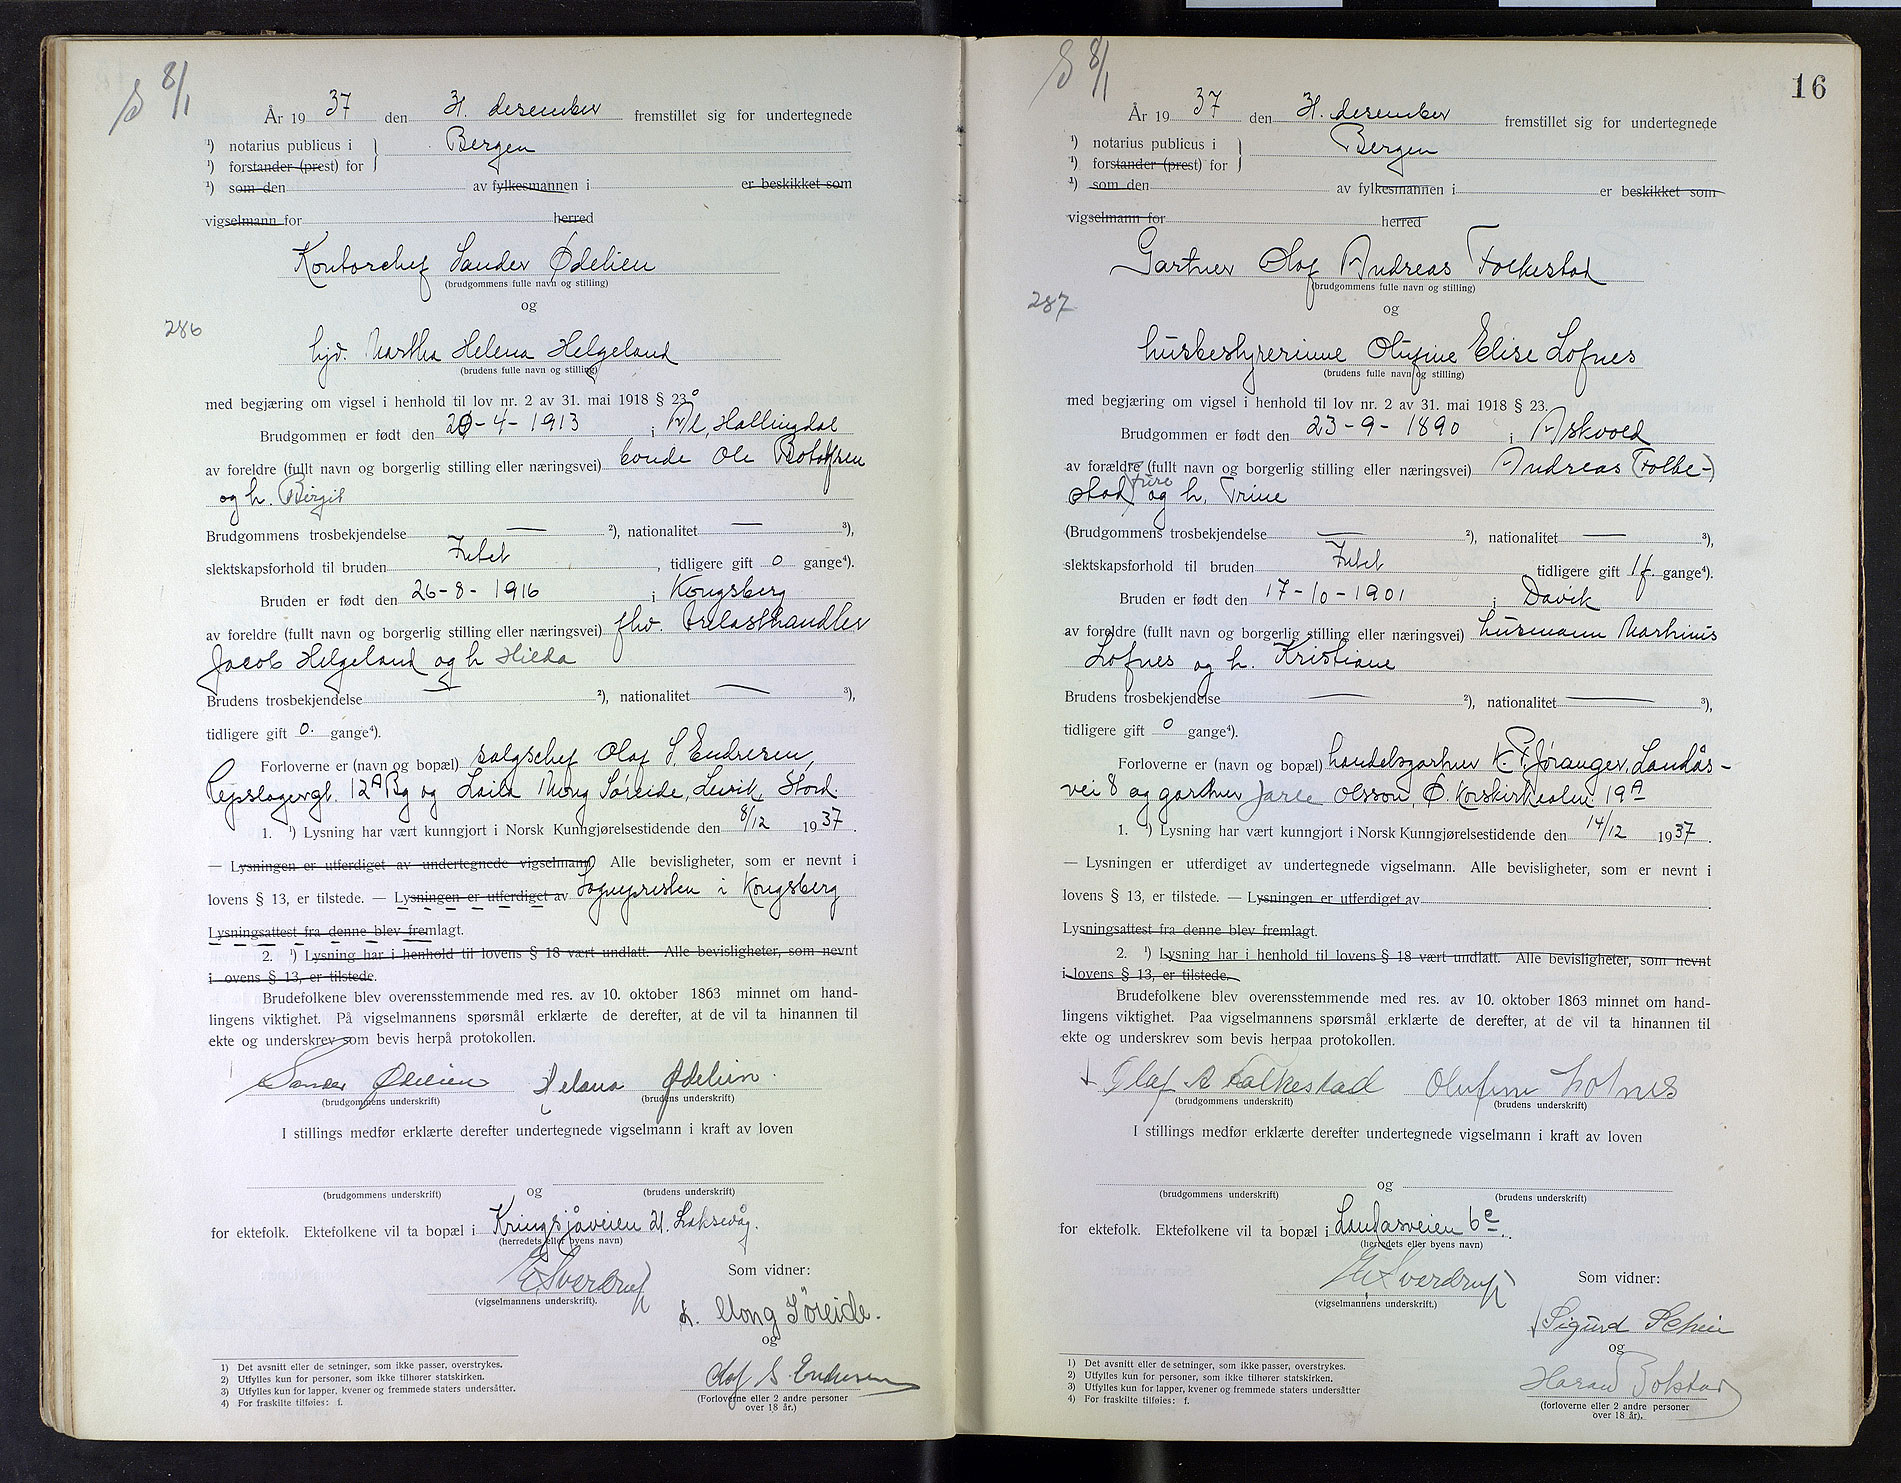 8/1
År 19 37 den 31. desember fremstillet sig for undertegnede
¹) notarius publicus i
Bergen
¹) forstander (prest) for
¹) som den av fylkesmannen i er beskikket som
vigselmann for herred
Kontorchef Sander Ødelien
(brudgommens fulle navn og stilling)
og
286
Martha Helena Helgeland
(brudens fulle navn og stilling)
med begjæring om vigsel i henhold til lov nr. 2 av 31. mai 1918 § 23.
Brudgommen er født den 20-4-1913 i Ål, Hallingdal
av foreldre (fullt navn og borgerlig stilling eller næringsvei) bonde Ole Botolfsen
og h. Birgit
Brudgommens trosbekjendelse — ²), nationalitet — ³),
slektskapsforhold til bruden Intet, tidligere gift 0 gange⁴).
Bruden er født den 26-8-1916 i Kongsberg
av foreldre (fullt navn og borgerlig stilling eller næringsvei) fhv. trelasthandler
Jacob Helgeland og h Hilda
Brudens trosbekjendelse — ²), nationalitet — ³),
tidligere gift 0. gange⁴).
Forloverne er (navn og bopæl) salgschef Olaf S. Endresen,
Repslagergt. 12ᴬ Bg og Laila Mong Søreide, Lervik, Stord
1. ¹) Lysning har vært kunngjort i Norsk Kunngjørelsestidende den 8/12 1937.
— Lysningen er utferdiget av undertegnede vigselmann. Alle bevisligheter, som er nevnt i
lovens § 13, er tilstede. — Lysningen er utferdiget av Sognepresten i Kongsberg
Lysningsattest fra denne blev fremlagt.
2. ¹) Lysning har i henhold til lovens § 18 vært undlatt. Alle bevisligheter, som nevnt
i ovens § 13, er tilstede.
Brudefolkene blev overensstemmende med res. av 10. oktober 1863 minnet om hand-
lingens viktighet. På vigselmannens spørsmål erklærte de derefter, at de vil ta hinannen til
ekte og underskrev som bevis herpå protokollen.
Sander Ødelien Helena Ødelien.
(brudgommens underskrift) (brudens underskrift)
I stillings medfør erklærte derefter undertegnede vigselmann i kraft av loven
og
(brudgommens underskrift) (brudens underskrift)
for ektefolk. Ektefolkene vil ta bopæl i Kringsjåveien 21. Laksevåg.
(herredets eller byens navn)
E. Sverdrup
Som vidner:
(vigselmannens underskrift).
L. Mong Søreide.
og
Olaf S. Endresen
(Forloverne eller 2 andre personer
over 18 år.)
1) Det avsnitt eller de setninger, som ikke passer, overstrykes.
2) Utfylles kun for personer, som ikke tilhører statskirken.
3) Utfylles kun for lapper, kvener og fremmede staters undersåtter.
4) For fraskilte tilføies: f.
8/1
16
År 19 37 den 31. desember fremstillet sig for undertegnede
¹) notarius publicus i
Bergen
¹) forstander (prest) for
¹) som den av fylkesmannen i er beskikket som
vigselmann for herred
Gartner Olaf Andreas Folkestad
(brudgommens fulle navn og stilling)
og
287
husbestyrerinne Olufine Elise Lofnes
(brudens fulle navn og stilling)
med begjæring om vigsel i henhold til lov nr. 2 av 31. mai 1918 § 23.
Brudgommen er født den 23-9-1890 i Askvold
av forældre (fullt navn og borgerlig stilling eller næringsvei) Andreas (Folke-)
stad) Fure og h. Trine
(Brudgommens trosbekjendelse — ²), nationalitet — ³),
slektskapsforhold til bruden Intet tidligere gift 1 f. gange⁴).
Bruden er født den 17-10-1901 i Davik
av foreldre (fullt navn og borgerlig stilling eller næringsvei) husmann Marthinus
Lofnes og h. Kristiane
Brudens trosbekjendelse — ²), nationalitet — ³),
tidligere gift 0 gange⁴).
Forloverne er (navn og bopæl) handelsgartner K. P. Jøranger, Landås-
vei 8 og gartner Jarle Olsson, Ø. Korskirkealm. 19ᴬ
1. ¹) Lysning har vært kunngjort i Norsk Kunngjørelsestidende den 14/12 1937.
— Lysningen er utferdiget av undertegnede vigselmann. Alle bevisligheter, som er nevnt i
lovens § 13, er tilstede. — Lysningen er utferdiget av
Lysningsattest fra denne blev fremlagt.
2. ¹) Lysning har i henhold til lovens § 18 vært undlatt. Alle bevisligheter, som nevnt
i lovens § 13, er tilstede.
Brudefolkene blev overensstemmende med res. av 10. oktober 1863 minnet om hand-
lingens viktighet. Paa vigselmannens spørsmål erklærte de derefter, at de vil ta hinannen til
ekte og underskrev som bevis herpaa protokollen.
Olaf A Folkestad Olufine Lofnes
(brudgommens underskrift) (brudens underskrift)
I stillings medfør erklærte derefter undertegnede vigselmann i kraft av loven
og
(brudgommens underskrift) (brudens underskrift)
for ektefolk. Ektefolkene vil ta bopæl i Landåsveien 6ᶜ.
(herredets eller byens navn)
E. Sverdrup
Som vidner:
(vigselmannens underskrift.)
Sigurd
og
(forloverne eller 2 andre personer
over 18 år).
1) Det avsnitt eller de setninger, som ikke passer, overstrykes.
2) Utfylles kun for personer, som ikke tilhører statskirken.
3) Utfylles kun for lapper, kvener og fremmede staters undersåtter
4) For fraskilte tilføies: f.